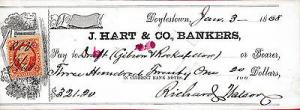 Doylestown, Jan. 3- 1868
J. HART & CO., BANKERS,
Pay to or Bearer,
Three Hundred & Twenty One 20/100 Dollars,
IN CURRENT BANK NOTES.
$321.20 Richard Watson